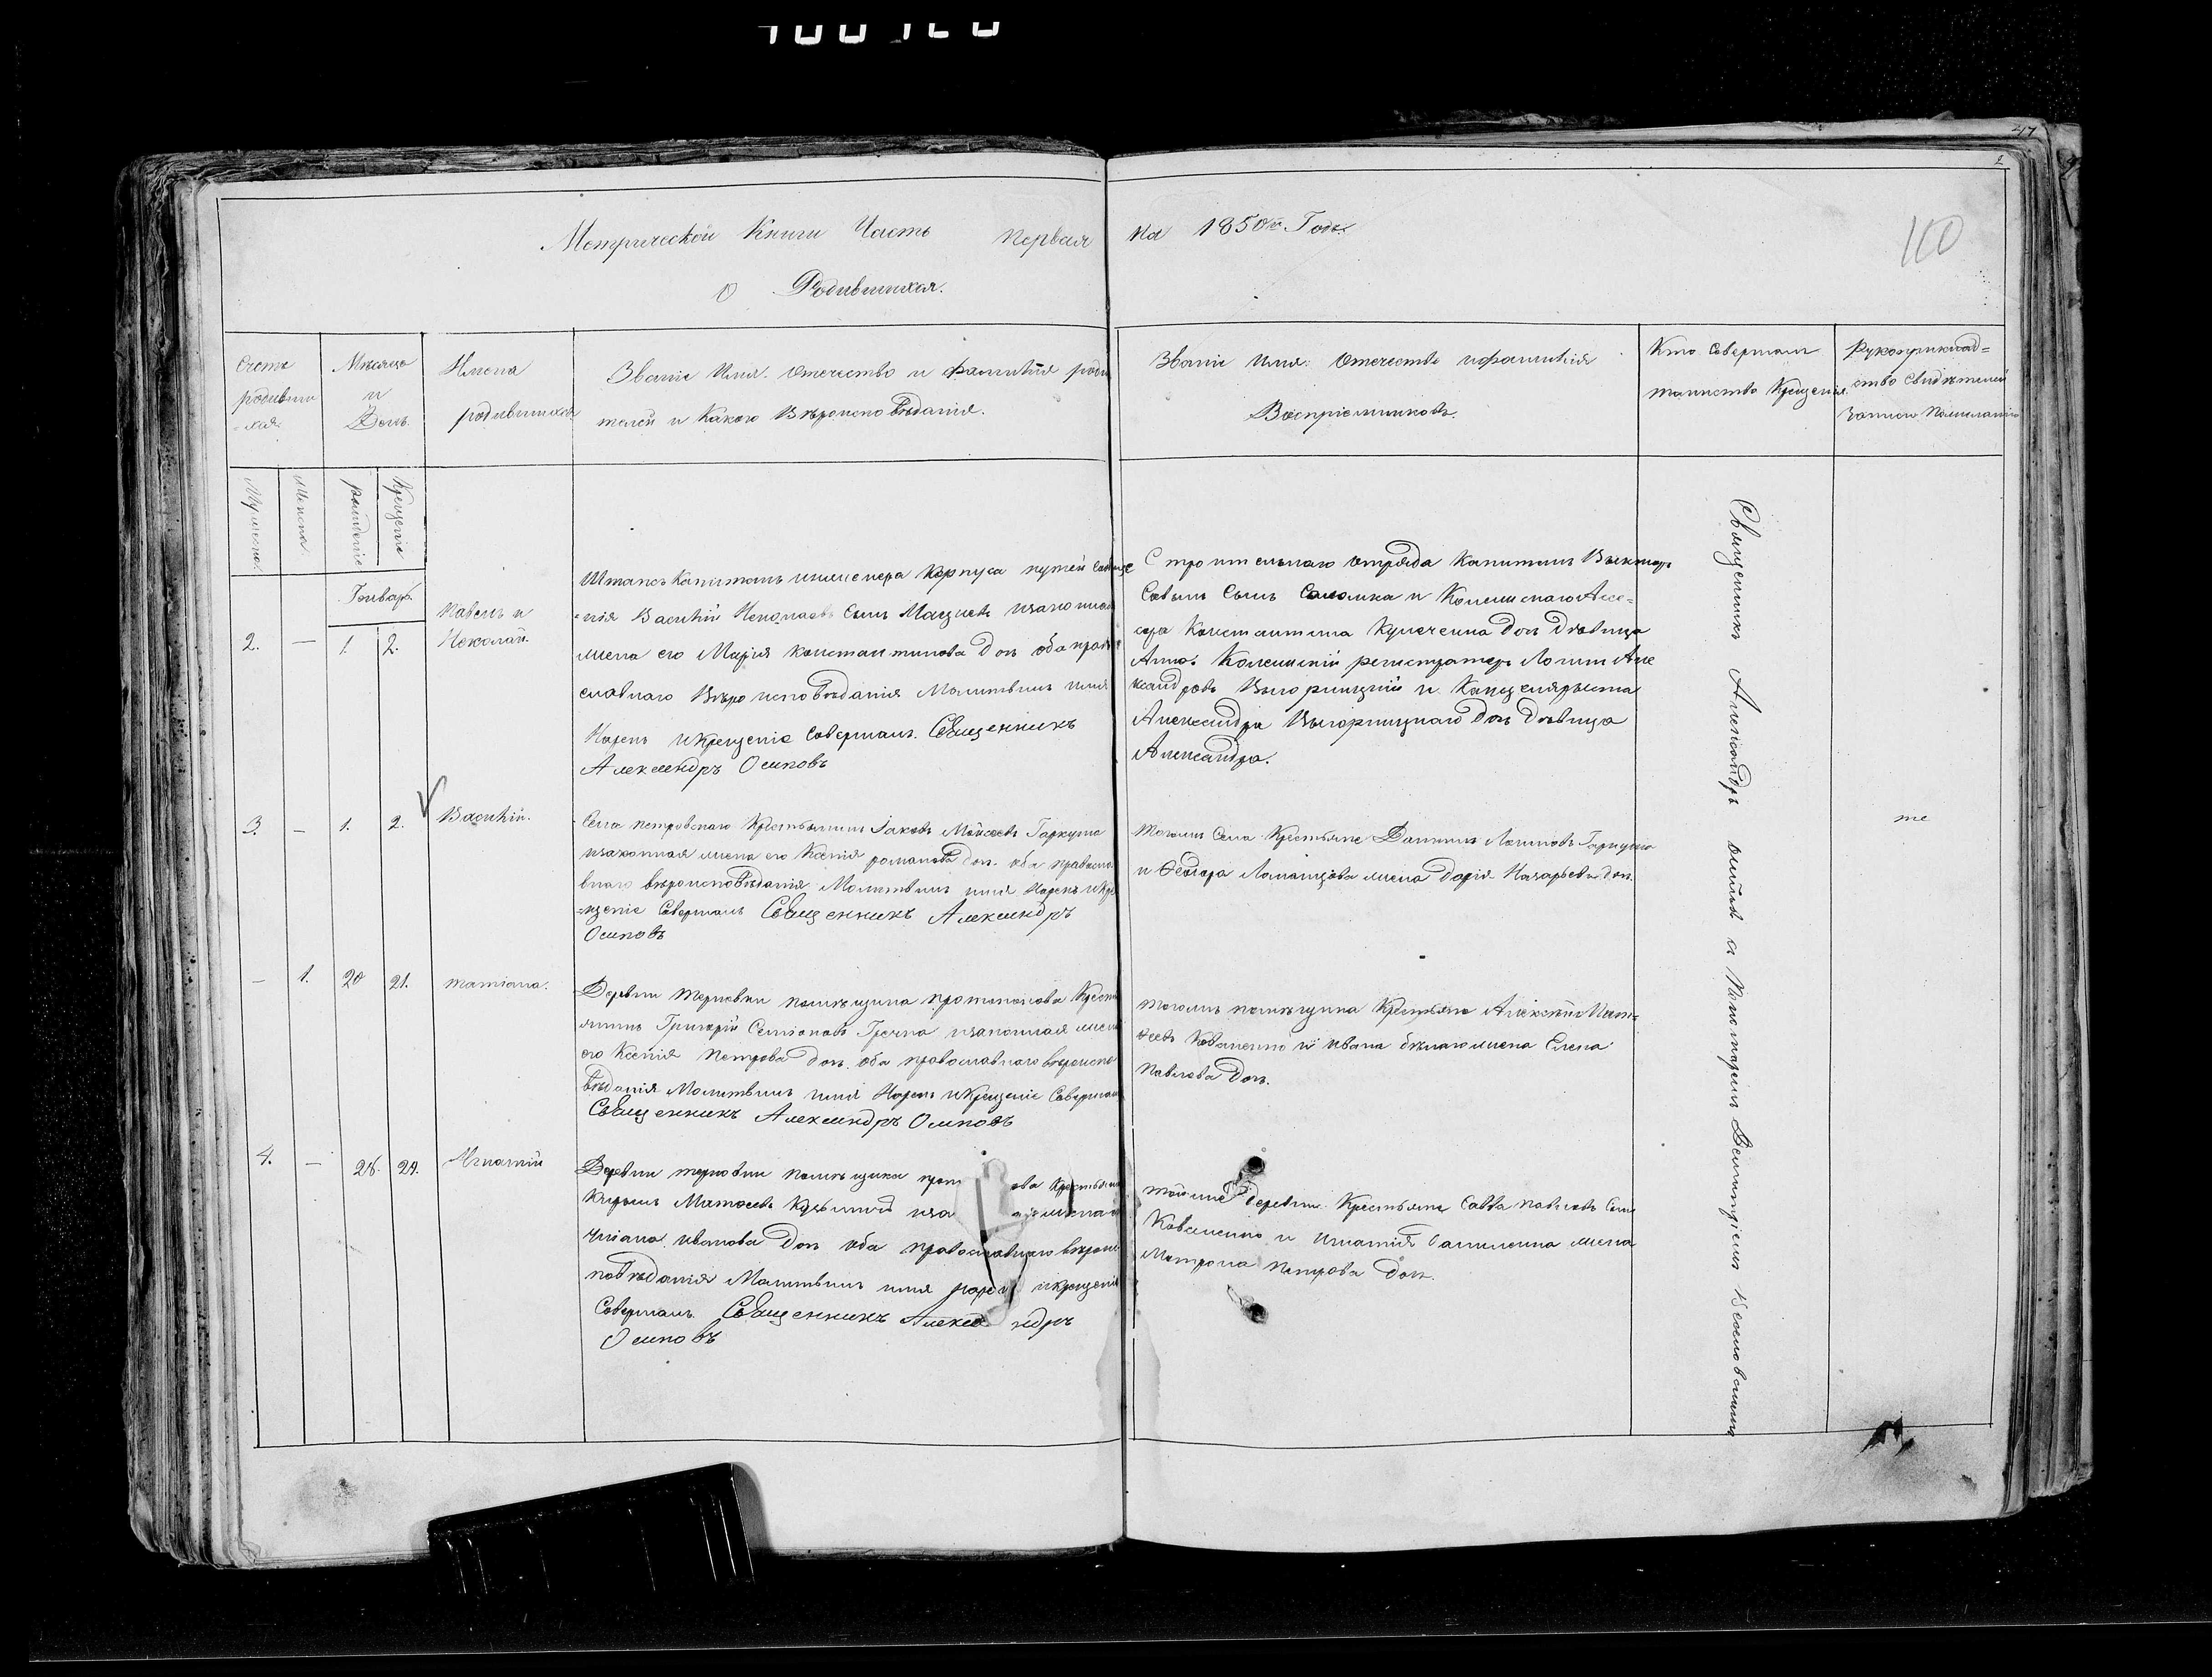 47
2
Метрической Книги Часть первая на 1850й Годъ.
110
О Родившихся.
Счетъ
родивши
=хся.
Мѣсяцъ
и
День.
Имена
родившихся
Званіе Имя. Отечество и Фамилія роди
телей и Какого Вѣроисповѣданія.
Званіе Имя. Отечество и фамилія
Воспріемниковъ.
Кто Совершалъ
таинство Крещенія.
Рукоприклад=
ство Свидѣтелей
записи
Мужеска.
Женска.
рожденіе
Крещеніе
Январ.
2. — 1. 2.
Павелъ и
Николай.
Штапсъ Капитанъ инженера Корпуса путей
=нія Василій Сынъ изаконная
жена его Марія константинова Доч оба право
славнаго Вѣроисповѣданія Молитвилъ имя
Нарекъ икрещеніе Совершалъ. Священникъ
Александръ Осиповъ
Строительнаго отряда Капитанъ Викторъ
Сынъ и Колежскаго Асе=
сора Константина Доч Дѣвица
Анна. Колежскій регистраторъ Логинъ Але
ксандровъ и Канцеляриста
Александра Доч Дѣвица
Александра.
3. — 1. 2.
Василій.
Села петровскаго Крестьянинъ Іаковъ Моисеевъ Гаркуша
изаконная жена его Ксенія романова Доч. оба правосла
внаго вѣроисповѣданія Молитвилъ имя Нарекъ икре
=щеніе Совершалъ Священникъ Александръ
Осиповъ
тогожъ Села Крестьяне Даніилъ Логиновъ Гаркуша
и Ѳедора жена Дарія Назарьева Доч.
те
— 1. 20 21.
татіана.
Деревни терновки помѣщика протопопова Крест
янинъ Григорій Семіоновъ Гречка изаконная жена
его Ксенія Петрова Доч. оба православнаго вѣроиспо
вѣданія Молитвилъ имя Нарекъ икрещеніе Совершалъ
Священникъ Александръ Осиповъ
тогожъ помѣщика Крестьяне Алексѣй
Коваленко и ивана бѣлаго жена Елена
Павлова Доч.
4. — 28. 29.
Игнатій
Деревни терновки помѣщика прот ова Крестьянинъ
Кирилъ иза жена
Уліана иванова Доч оба православнаго вѣроис
повѣданія Молитвилъ имя нарекъ икрещеніе
Совершалъ. Священникъ Александръ
Осиповъ
тойже деревни Крестьяне Савва павловъ Сынъ
Коваленко и Игнатія жена
Матрона петрова Доч.
Священникъ Александръ Осиповъ съ Пономаремъ